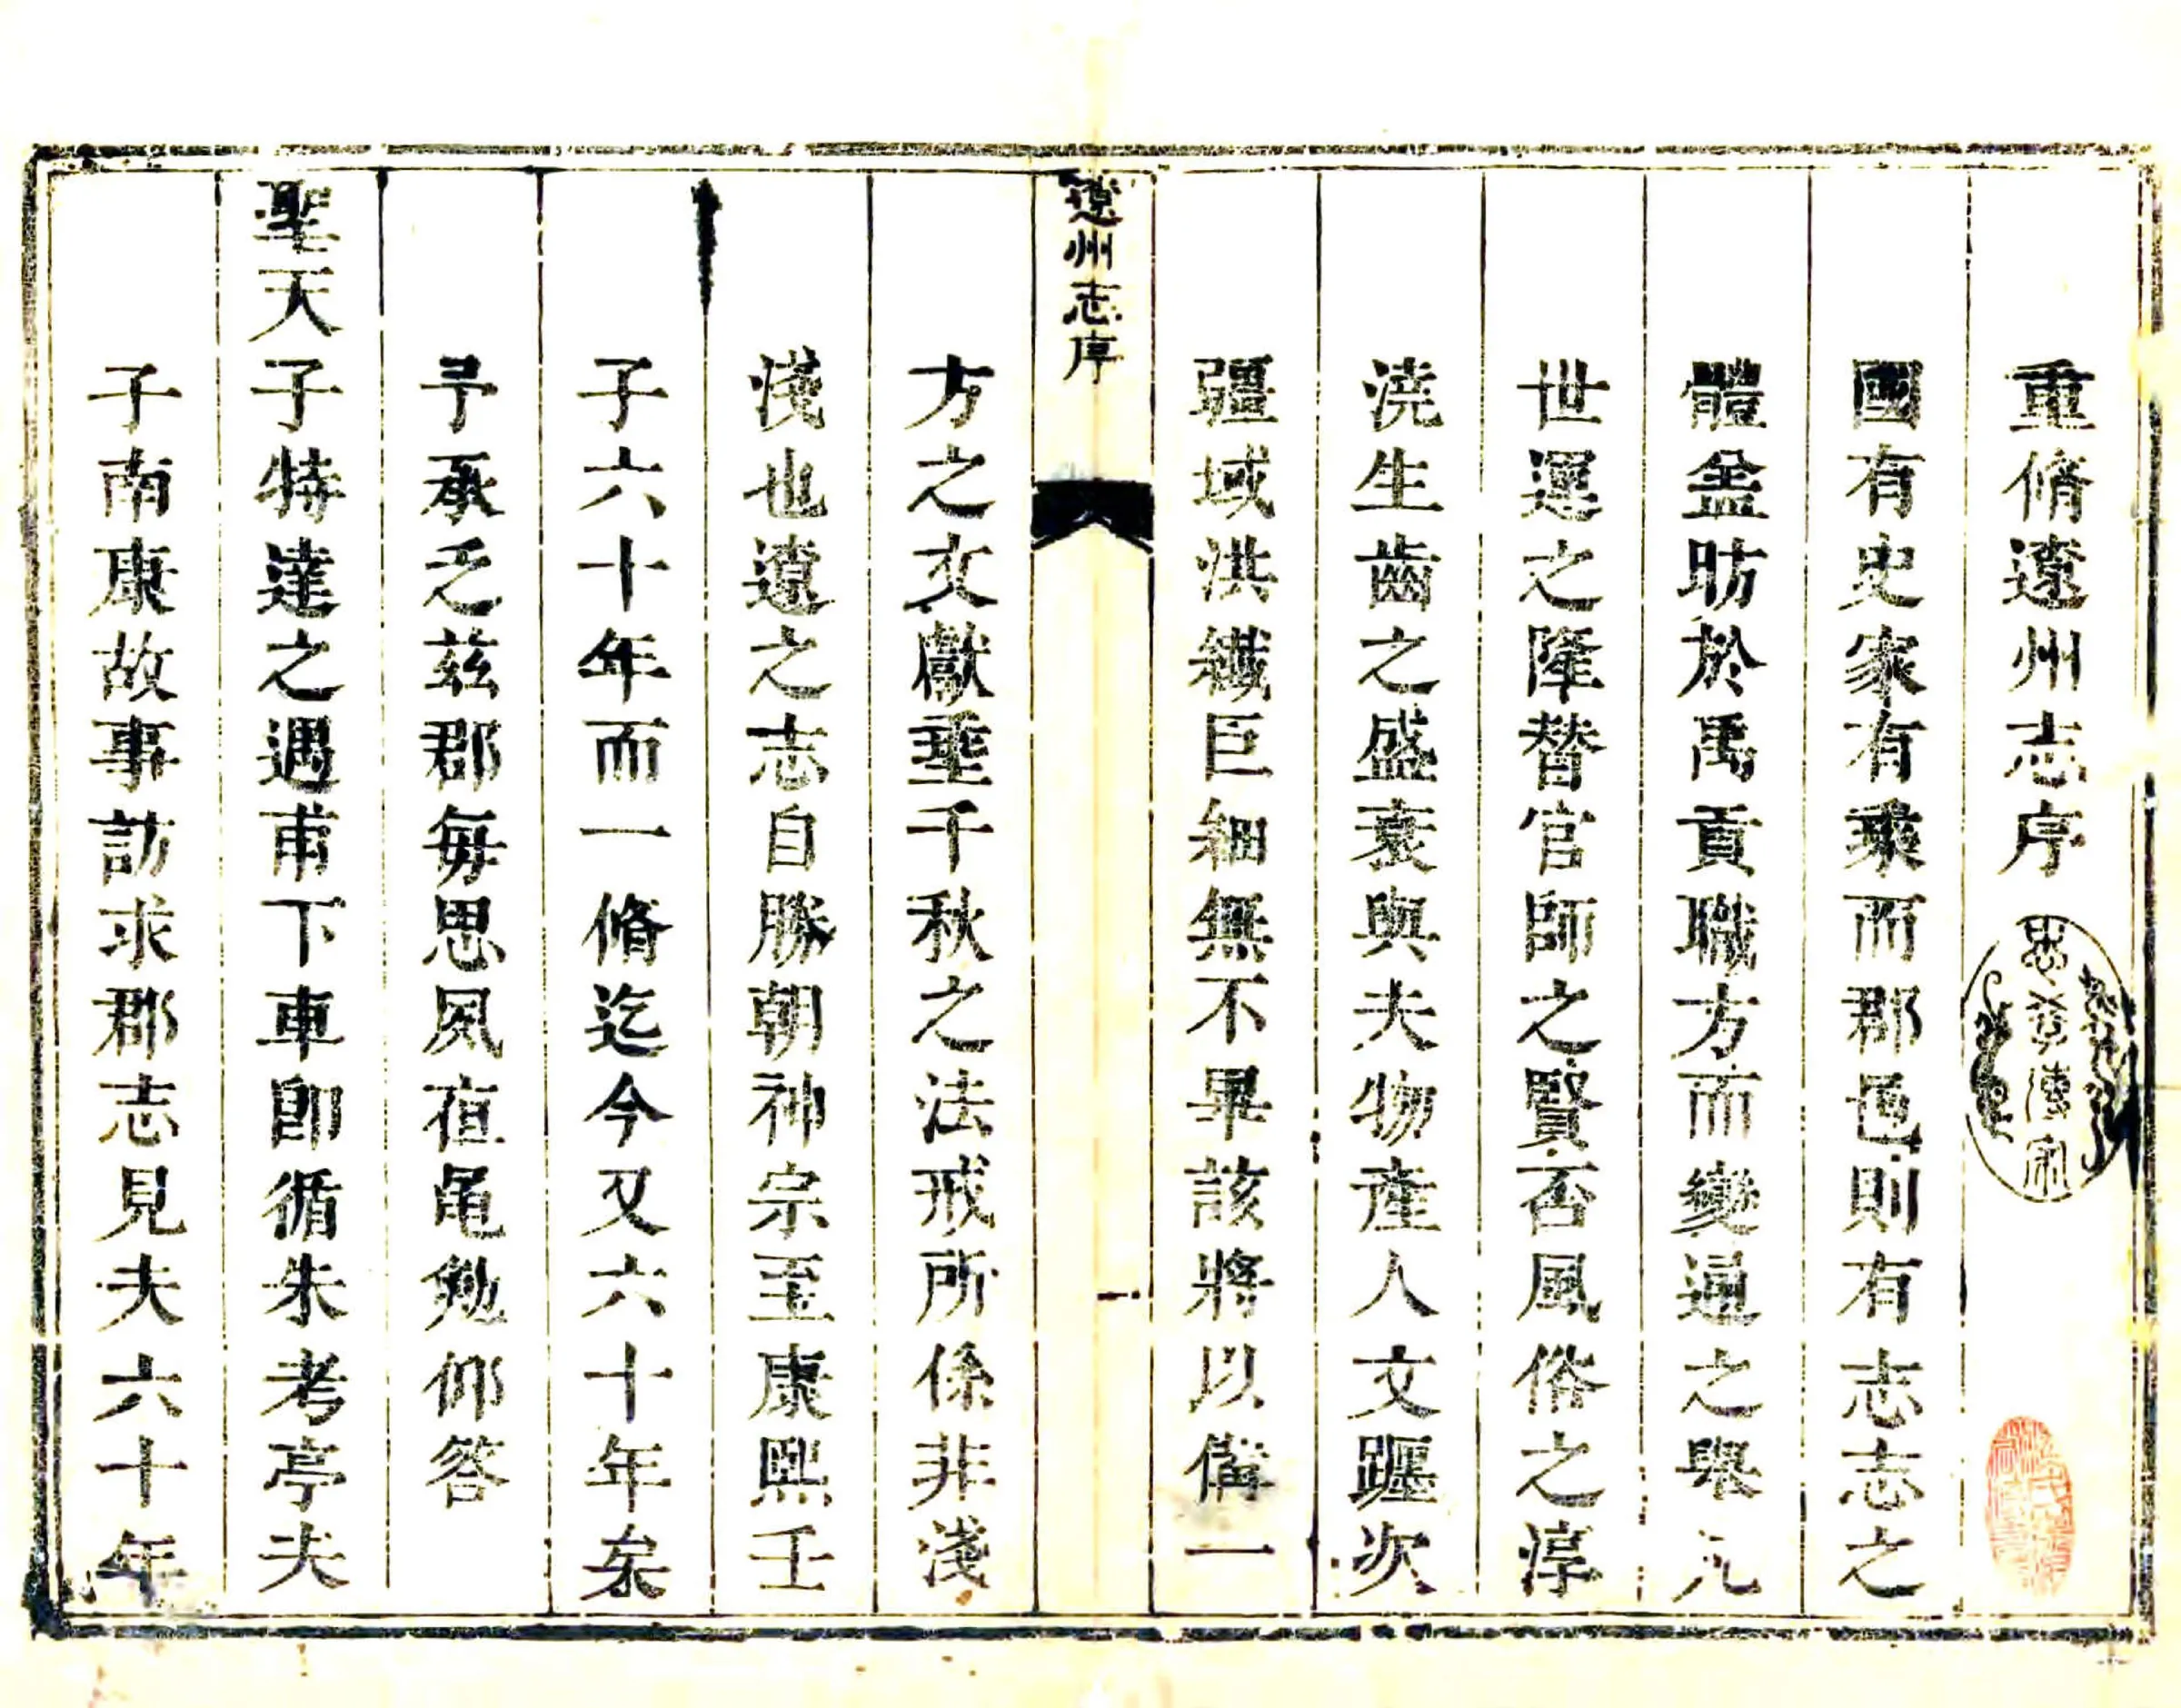 重脩遼州志序
國有史家有乘而郡邑則有志志之
體盖昉於禹貢職方而變通之舉凡
世運之隆替官師之賢否風俗之淳
澆生齒之盛衰與夫物產人文躔次
疆域洪纖巨細無不畢該將以備一
遼州志序
一
方之文獻垂千秋之法戒所係非淺
淺也遼之志自勝朝神宗至康熙壬
子六十年而一脩迄今又六十年矣
予承乏兹郡每思夙夜黽勉仰答
聖天子特達之遇甫下車卽循朱考亭夫
子南康故事訪求郡志見夫六十年